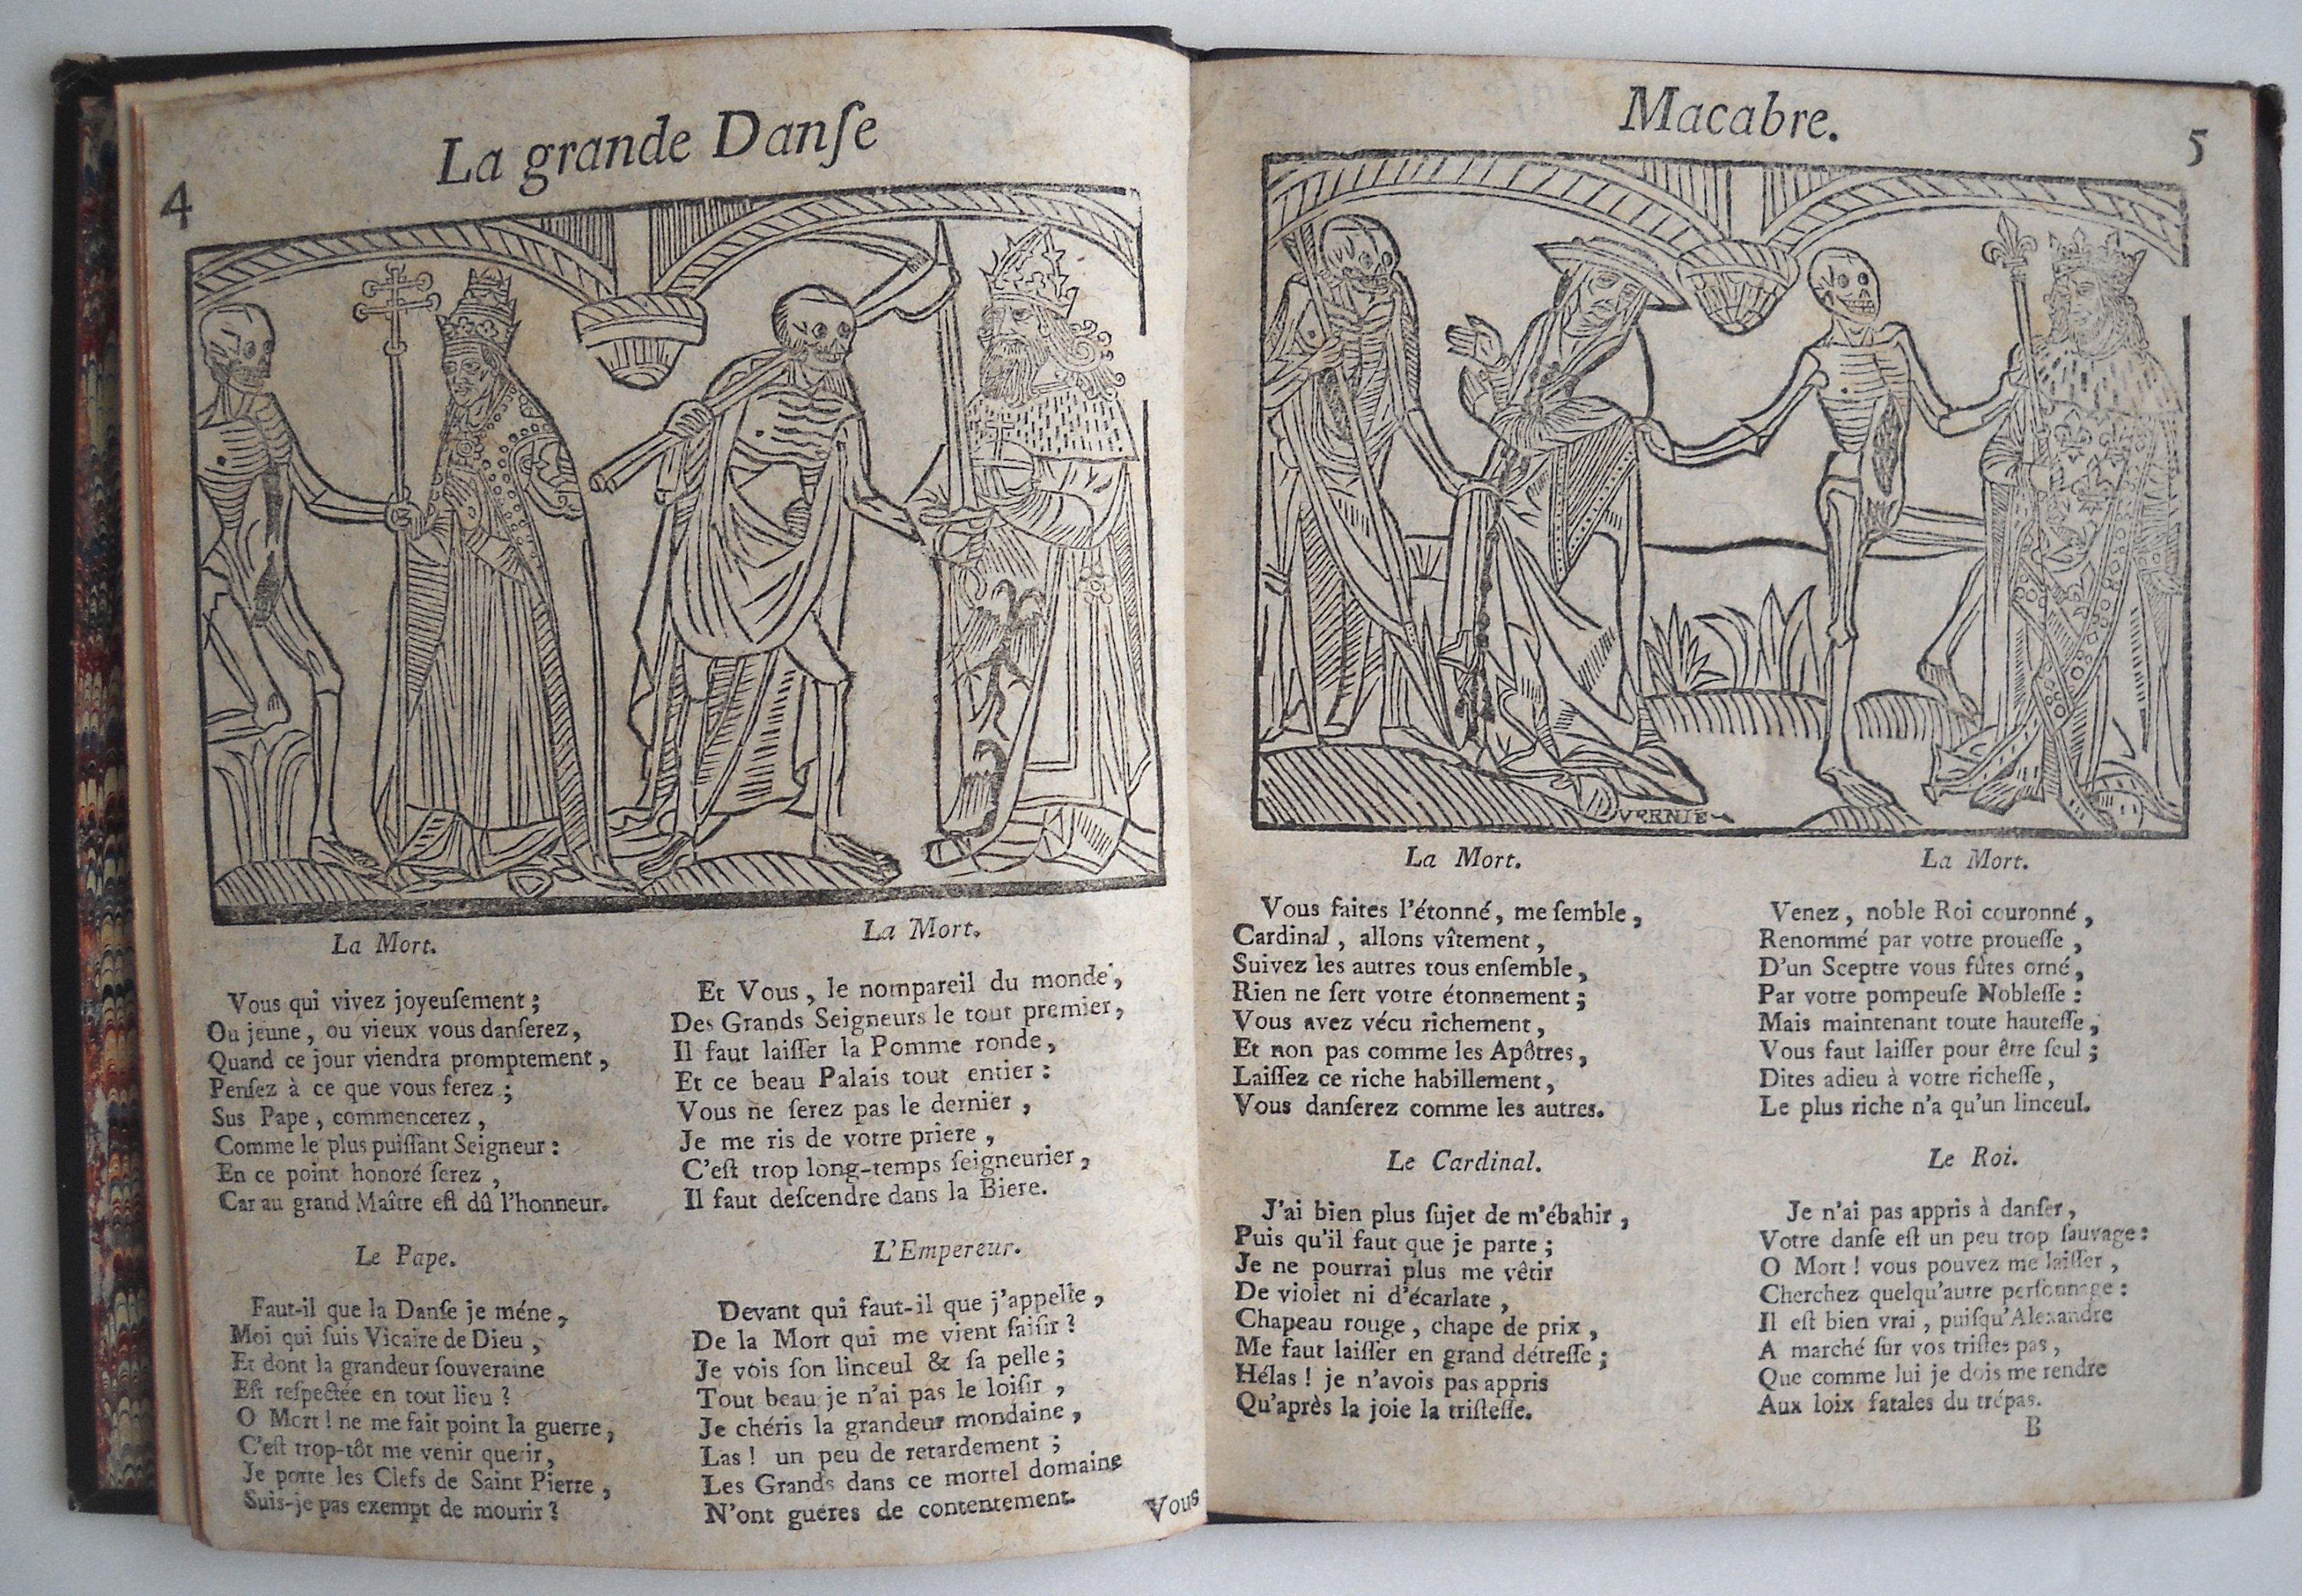 4
La grande Danſe
La Mort.
Vous qui vivez joyeuſement ;
Ou jeune, ou vieux vous danſerez,
Quand ce jour viendra promptement,
Penſez à ce que vous ferez ;
Sus Pape, commencerez,
Comme le plus puiſſant Seigneur :
En ce point honoré ſerez,
Car au grand Maître eſt dû l'honneur.
Le Pape.
Faut-il que la Danſe je méne,
Moi qui ſuis Vicaire de Dieu,
Et dont la grandeur ſouveraine
Eſt reſpectée en tout lieu ?
O Mort ! ne me fait point la guerre,
C'eſt trop-tôt me venir querir,
Je porte les Clefs de Saint Pierre,
Suis-je pas exempt de mourir ?
La Mort.
Et Vous, le nompareil du monde,
Des Grands Seigneurs le tout premier,
Il faut laiſſer la Pomme ronde,
Et ce beau Palais tout entier :
Vous ne ſerez pas le dernier,
Je me ris de votre priere,
C'eſt trop long-temps ſeigneurier,
Il faut deſcendre dans la Biere.
L'Empereur.
Devant qui faut-il que j'appelle,
De la Mort qui me vient ſaiſir ?
Je vois ſon linceul & ſa pelle ;
Tout beau je n'ai pas le loiſir,
Je chéris la grandeur mondaine,
Las ! un peu de retardement ;
Les Grands dans ce mortel domaine
N'ont guéres de contentement.
Vous
Macabre.
5
VERNIE
La Mort.
Vous faites l'étonné, me ſemble,
Cardinal, allons vîtement,
Suivez les autres tous enſemble,
Rien ne ſert votre étonnement ;
Vous avez vécu richement,
Et non pas comme les Apôtres,
Laiſſez ce riche habillement,
Vous danſerez comme les autres.
Le Cardinal.
J'ai bien plus ſujet de m'ébahir,
Puis qu'il faut que je parte ;
Je ne pourrai plus me vêtir
De violet ni d'écarlate,
Chapeau rouge, chape de prix,
Me faut laiſſer en grand détreſſe ;
Hélas ! je n'avois pas appris
Qu'après la joie la triſteſſe.
La Mort.
Venez, noble Roi couronné,
Renommé par votre proueſſe,
D'un Sceptre vous fûtes orné,
Par votre pompeuſe Nobleſſe :
Mais maintenant toute hauteſſe,
Vous faut laiſſer pour être ſeul ;
Dites adieu à votre richeſſe,
Le plus riche n'a qu'un linceul.
Le Roi.
Je n'ai pas appris à danſer,
Votre danſe eſt un peu trop ſauvage :
O Mort ! vous pouvez me laiſſer,
Cherchez quelqu'autre perſonnage :
Il eſt bien vrai, puiſqu'Alexandre
A marché ſur vos triſtes pas,
Que comme lui je dois me rendre
Aux loix fatales du trépas.
B